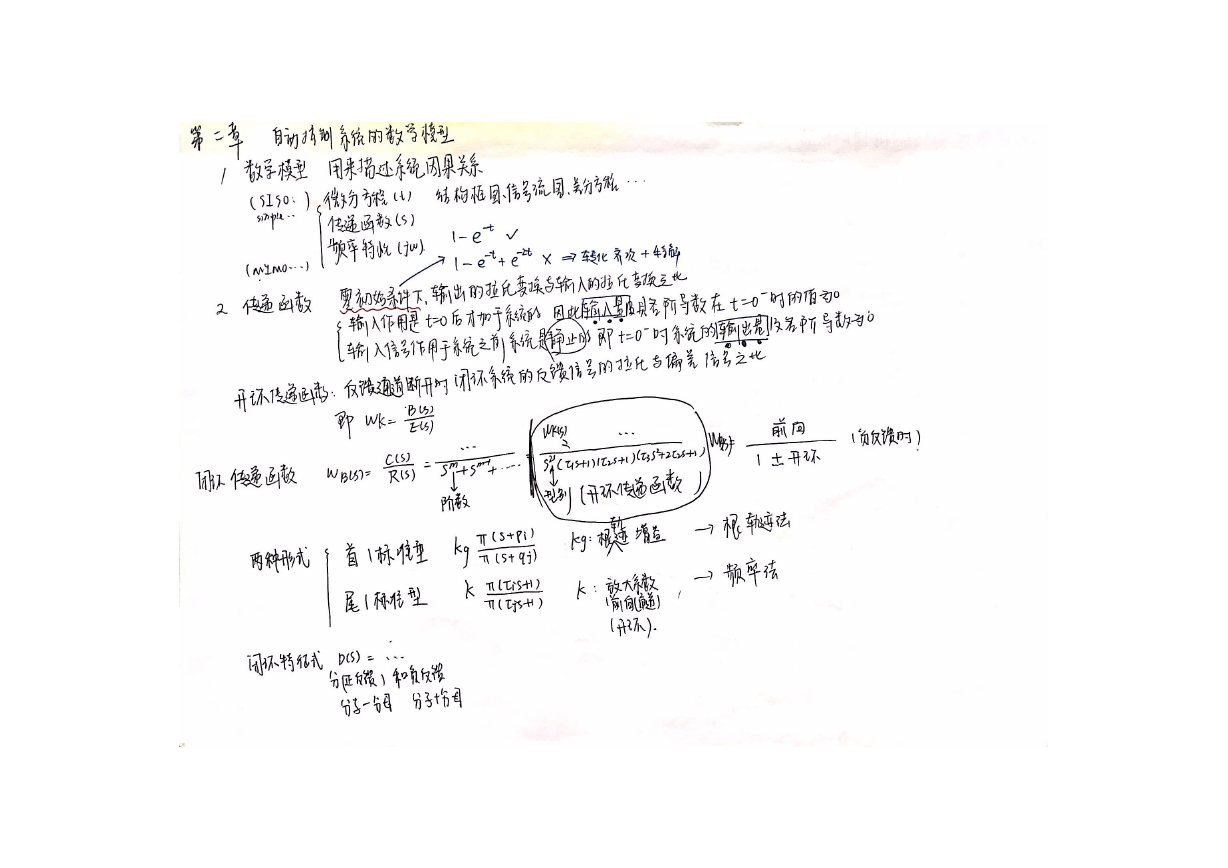 第二章 自动控制系统的数学模型
1 数学模型 用来描述系统因果关系
(SISO:) 微分方程(t) 结构框图、信号流图、差分方程…
simple.. 传递函数(s)
频率特性(jw) 1-e^-t ✓
(mimo...) 1-e^-t+e^-2t × ⇒转化 齐次+特解
2 传递函数 零初始条件下,输出的拉氏变换与输入的拉氏变换之比
输入作用是t=0后才加于系统的 因此输入量及其各阶导数在t=0^-时的值为0
输入信号作用于系统之前系统是静止的 即t=0^-时系统的输出量及各阶导数为0
开环传递函数: 反馈通道断开时 闭环系统的反馈信号的拉氏与偏差信号之比
即 Wk= B(s)/E(s)
闭环传递函数 WB(s)= C(s)/R(s) = …/S^m+S^m-1+…. = Wk(s) …/(τ1s+1)(τ2s+1)(τ3s²+2τ2s+1) 前向/1±开环 (负反馈时)
阶数 型别 (开环传递函数)
两种形式 首1标准型 kg π(s+pi)/π(s+qj) kg: 根轨迹增益 → 根轨迹法
尾1标准型 k π(τis+1)/π(τjs+1) k: 放大系数 → 频率法
(前向通道)
(开环).
闭环特征式 D(s) = …
分(正反馈)和负反馈
分子-分母 分子+分母